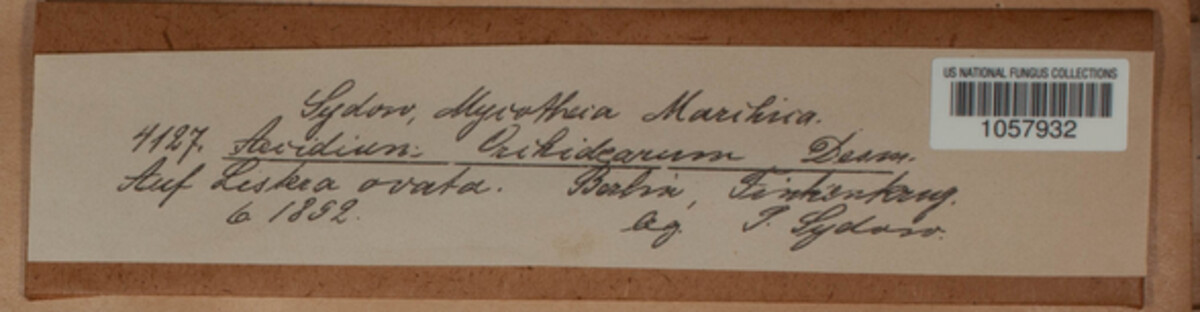 US NATIONAL FUNGUS COLLECTIONS
1057932
Sydow, Mycotheca Marchica.
4127. Aecidium Orchidearum Desm.
Auf Listera ovata. Berlin, Finkenkrug.
6 1892. leg. P. Sydow.